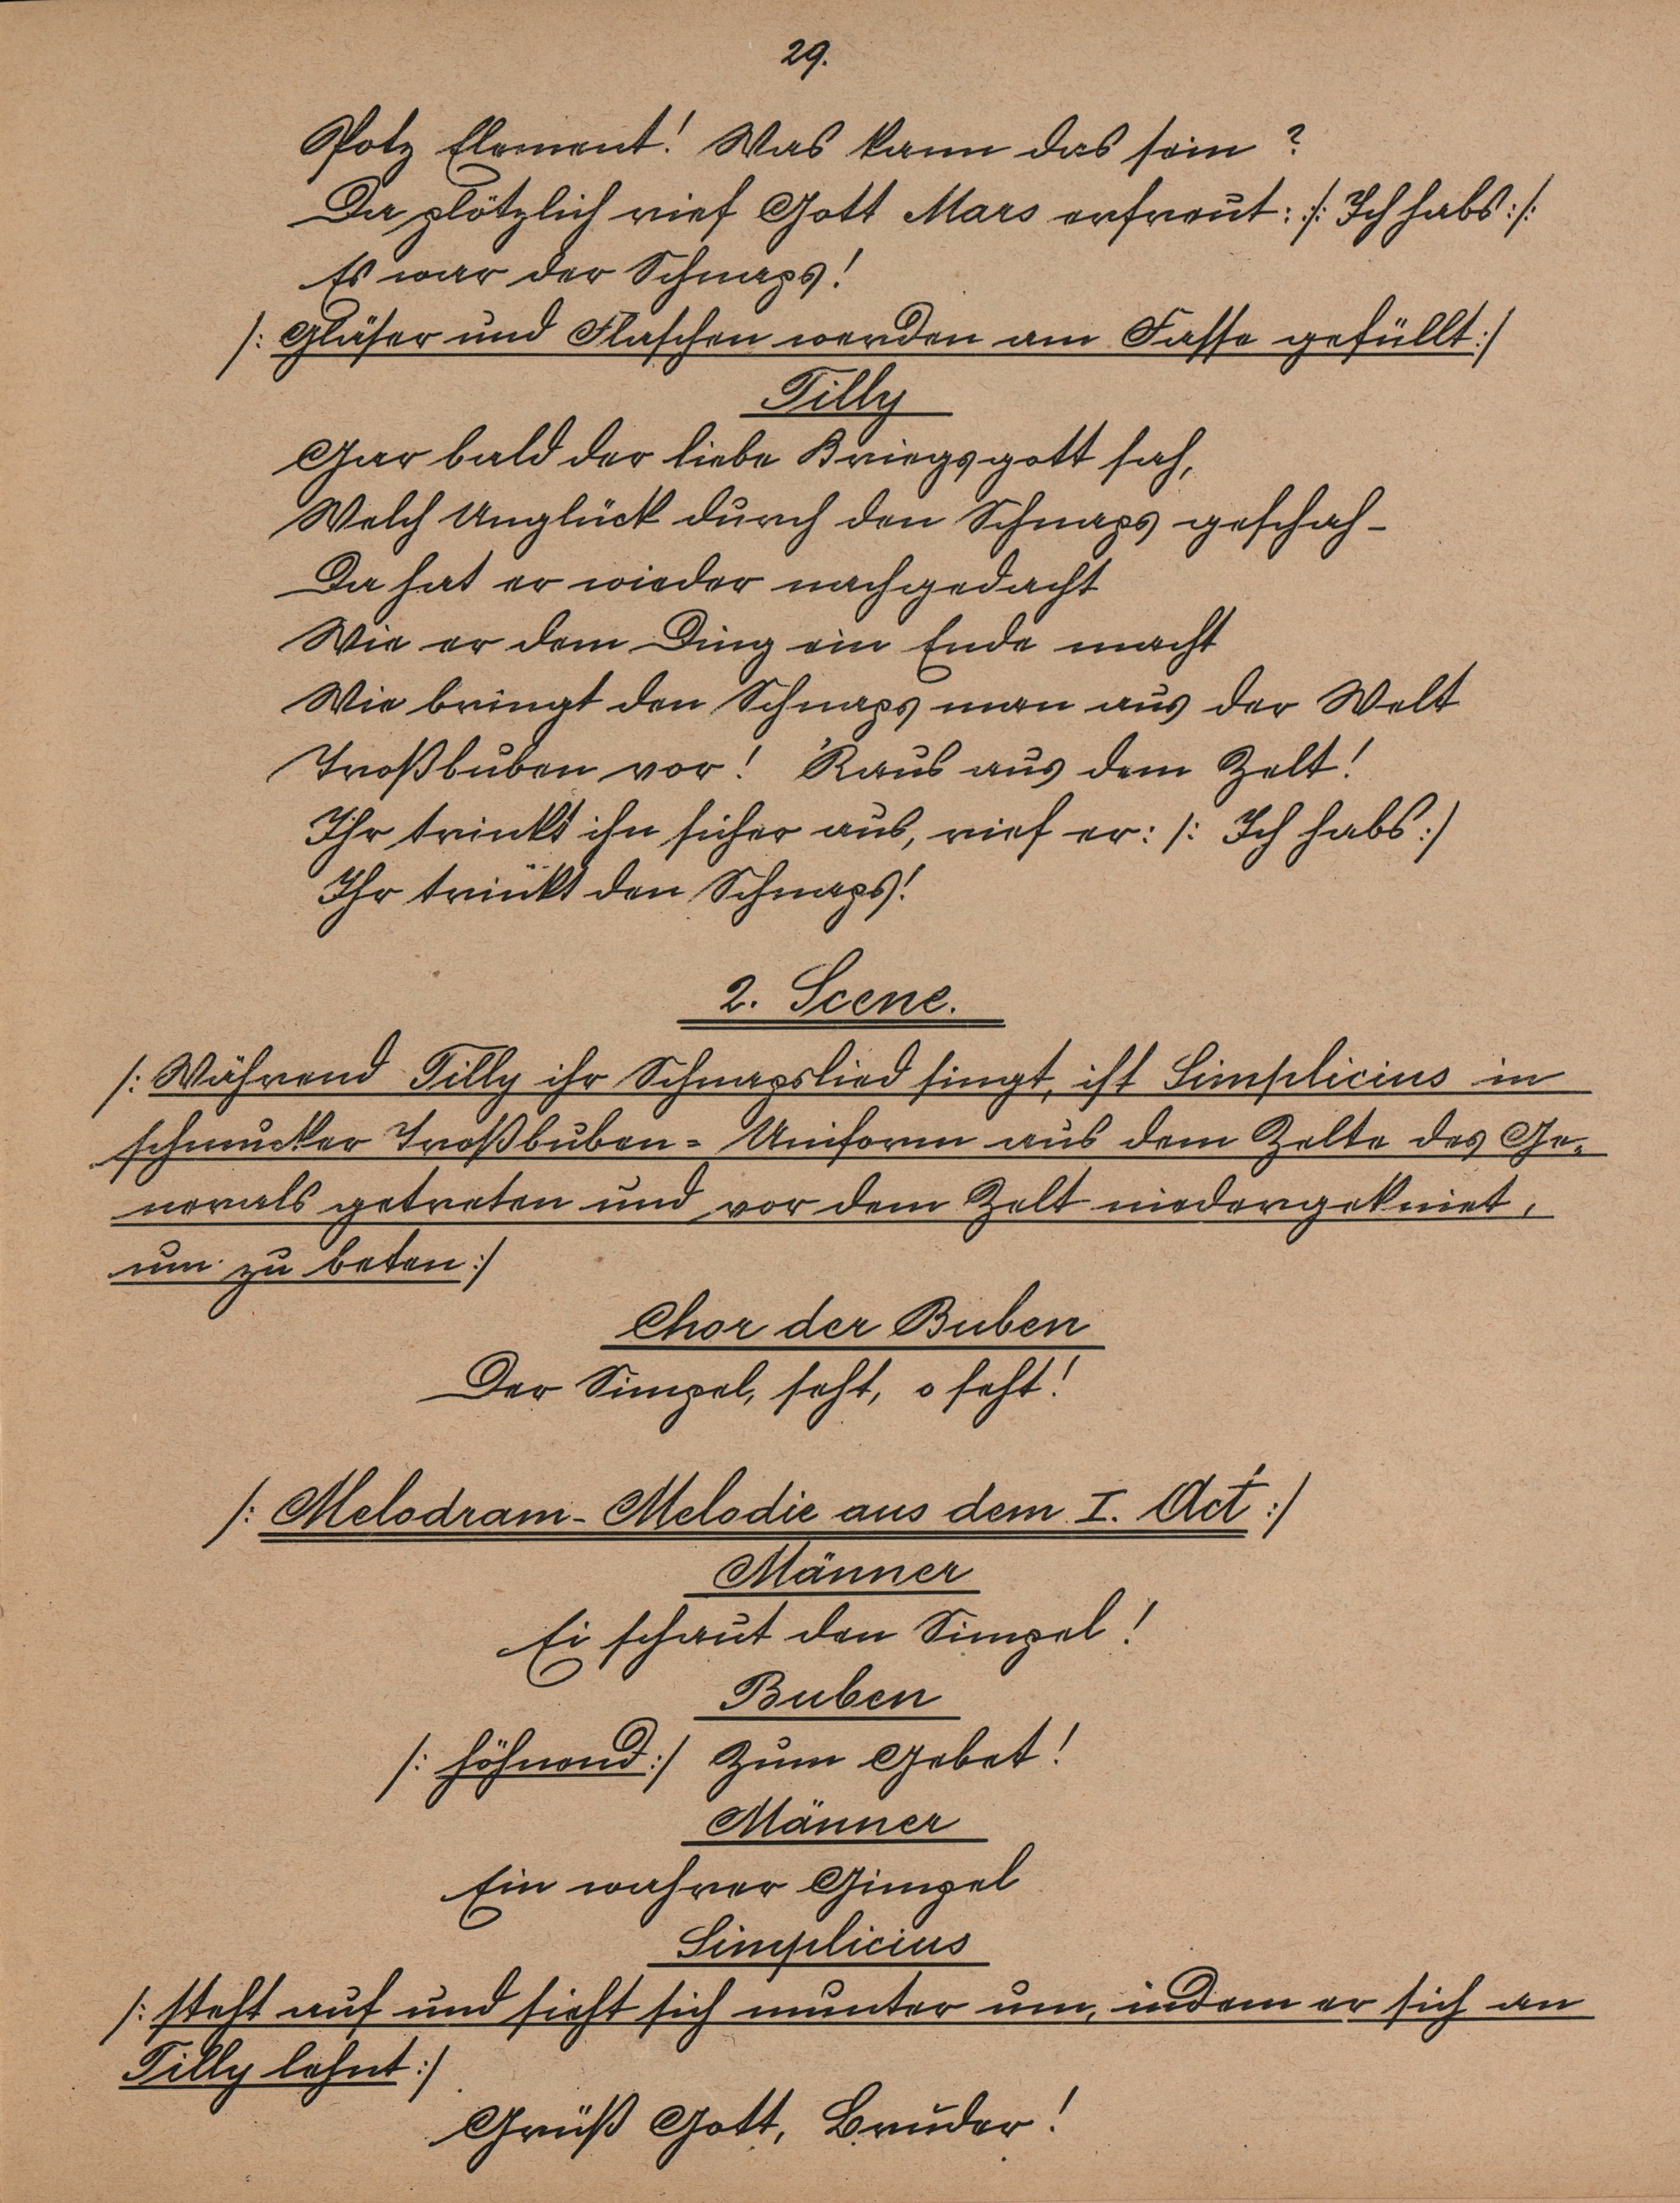 29.
Potz Element! Was kann das sein?
Da plötzlich rief Gott Mars erfreut: :/: Ich habs :/:
Es war der Schnaps!
/: Gläser und Flaschen werden am Fasse gefüllt :/
Tilly
Gar bald der liebe Kriegsgott sah,
Welch Unglück durch den Schnaps geschah -
Da hat er wieder nachgedacht
Wie er dem Ding ein Ende macht
Wie bringt den Schnaps man aus der Welt
Troßbuben vor! 'Raus aus dem Zelt!
Ihr trinkt ihn sicher aus, rief er: /: Ich habs :/
Ihr trinkt den Schnaps!
2. Scene.
/: Während Tilly ihr Schnapslied singt, ist Simplicius in
schmucker Troßbuben = Uniform aus dem Zelte des Ge=
nerals getreten und vor dem Zelt niedergekniet,
um zu beten :/
Chor der Buben
Der Simpel, seht, o seht!
/: Melodram - Melodie aus dem I. Act :/
Männer
Ei schaut den Simpel!
Buben
/: höhnend :/ Zum Gebet!
Männer
Ein wahrer Gimpel
Simplicius
/: steht auf und sieht sich munter um, indem er sich an
Tilly lehnt :/
Grüß Gott, Bruder!